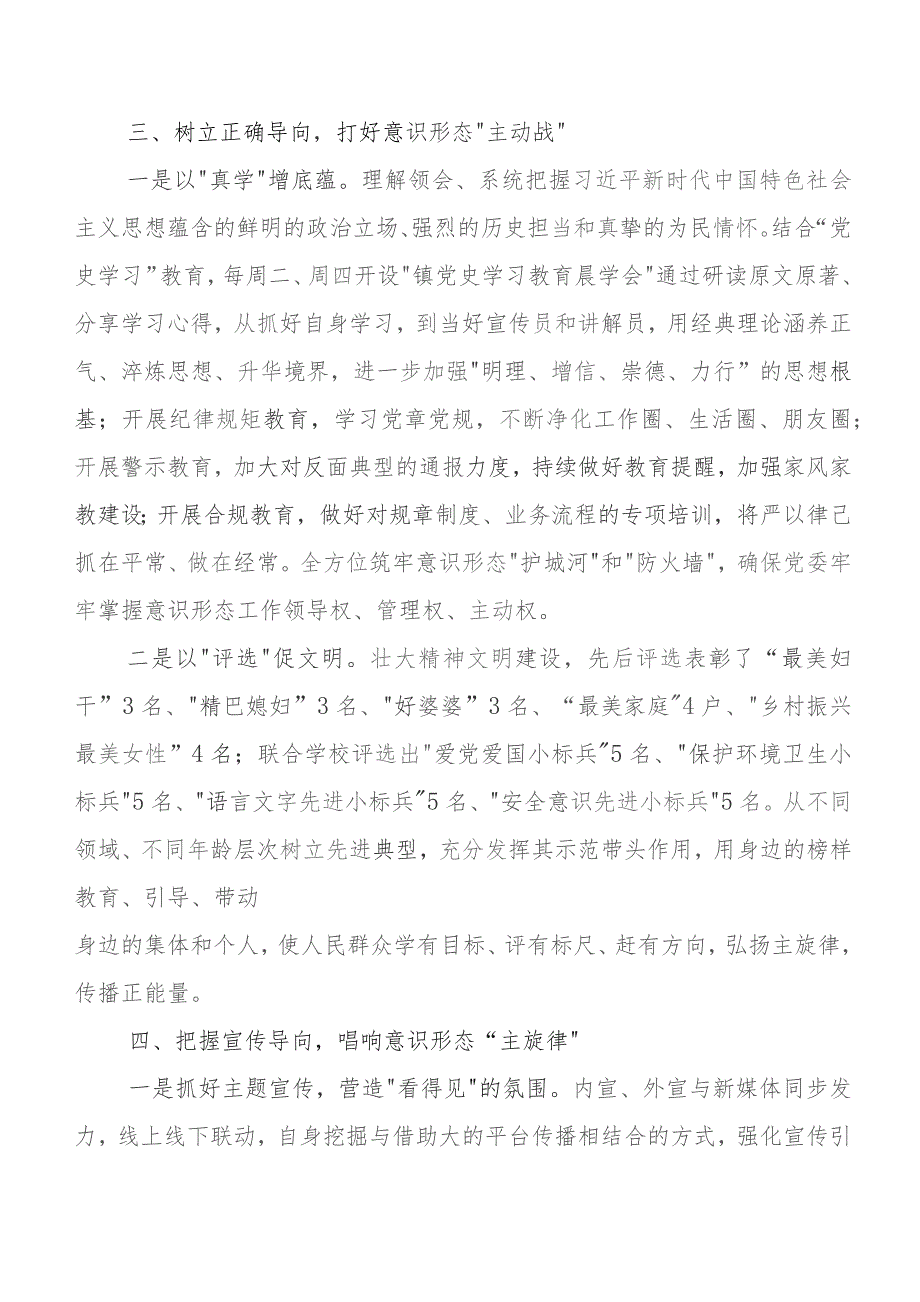 三、树立正确导向，打好意识形态"主动战"
一是以"真学"增底蕴。理解领会、系统把握习近平新时代中国特色社会
主义思想蕴含的鲜明的政治立场、强烈的历史担当和真挚的为民情怀。结合“党
史学习”教育，每周二、周四开设"镇党史学习教育晨学会"通过研读原文原著、
分享学习心得，从抓好自身学习，到当好宣传员和讲解员，用经典理论涵养正
气、淬炼思想、升华境界，进一步加强"明理、增信、崇德、力行”的思想根
基；开展纪律规矩教育，学习党章党规，不断净化工作圈、生活圈、朋友圈；
开展警示教育，加大对反面典型的通报力度，持续做好教育提醒，加强家风家
教建设；开展合规教育，做好对规章制度、业务流程的专项培训，将严以律己
抓在平常、做在经常。全方位筑牢意识形态"护城河"和"防火墙"，确保党委牢
牢掌握意识形态工作领导权、管理权、主动权。
二是以"评选"促文明。壮大精神文明建设，先后评选表彰了“最美妇
干”3名、"精巴媳妇”3名、"好婆婆”3名、“最美家庭"4户、"乡村振兴
最美女性”4名；联合学校评选出"爱党爱国小标兵"5名、"保护环境卫生小
标兵"5名、"语言文字先进小标兵"5名、"安全意识先进小标兵"5名。从不同
领域、不同年龄层次树立先进典型，充分发挥其示范带头作用，用身边的榜样
教育、引导、带动
身边的集体和个人，使人民群众学有目标、评有标尺、赶有方向，弘扬主旋律，
传播正能量。
四、把握宣传导向，唱响意识形态“主旋律"
一是抓好主题宣传，营造"看得见"的氛围。内宣、外宣与新媒体同步发
力，线上线下联动，自身挖掘与借助大的平台传播相结合的方式，强化宣传引